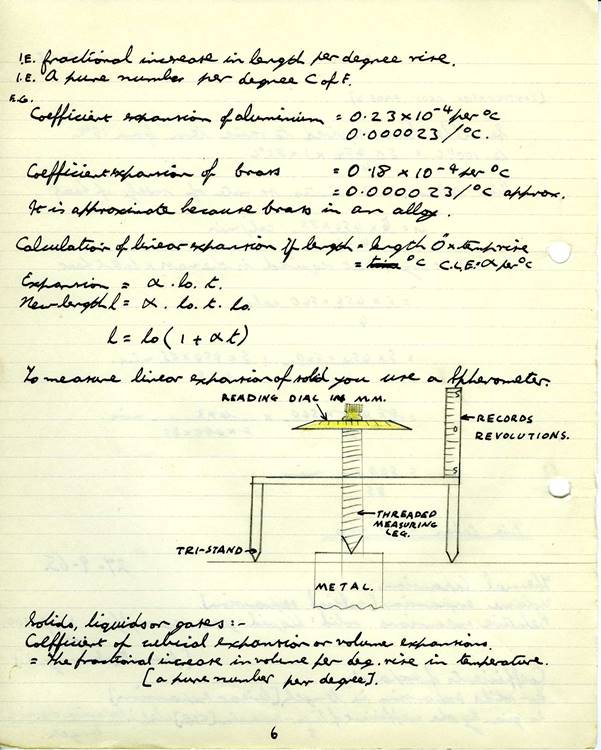 I.E. fractional increase in length per degree rise.
I.E. A pure number per degree C of F.
E.G.
Coefficient expansion of aluminium = 0.23 x 10⁻⁴ per °C
0.000023/°C.
Coefficient expansion of brass = 0.18 x 10⁻⁴ per °C
= 0.000023/°C approx.
It is approximate because brass in an alloy.
Calculation of linear expansion if length = length O° x temp rise
= °C C.L.E = α per °C
Expansion = α. lo. t.
New length l = α. lo. t. lo.
l = lo(1 + αt)
To measure linear expansion of solid you use a Spherometer.
READING DIAL IN M.M.
5
0
5
RECORDS
REVOLUTIONS.
THREADED
MEASURING
LEG.
TRI-STAND
METAL.
Solids, liquids or gases:-
Coefficient of cubical expansion or volume expansions.
= The fractional increase in volume per deg. rise in temperature.
[a pure number per degree].
6